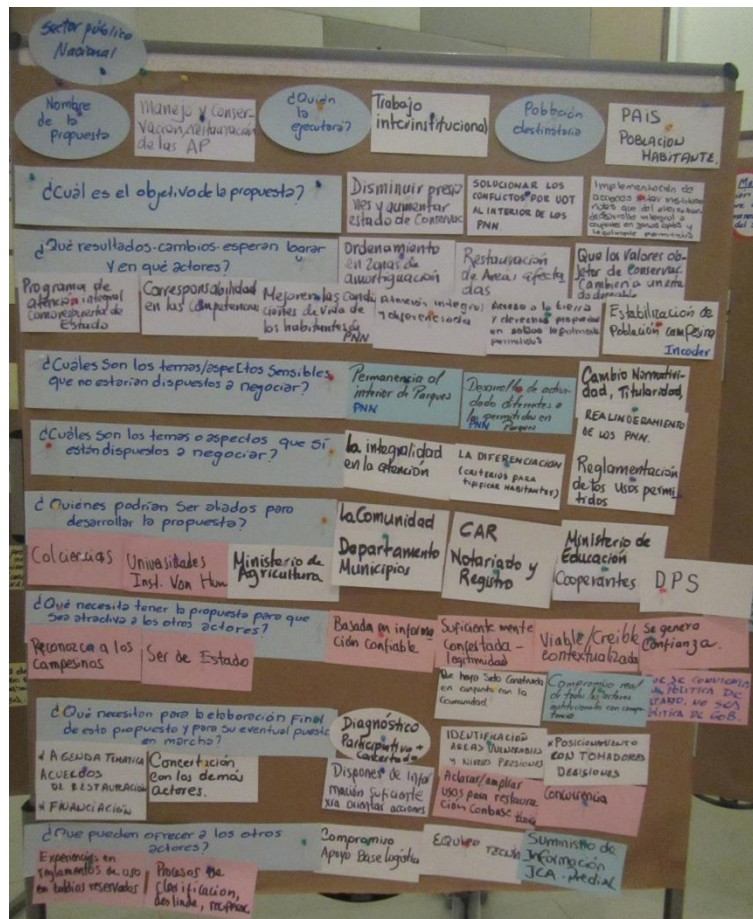 Sector público
Nacional
Nombre
de la
propuesta
Manejo y Conser-
vación, restauración
de las AP
¿Quién
la
ejecutará?
Trabajo
interinstitucional
Población
destinataria
PAIS
POBLACION
HABITANTE.
¿Cuál es el objetivo de la propuesta?
Disminuir presio
nes y aumentar
estado de Conservac
SOLUCIONAR LOS
CONFLICTOS POR UOT
AL INTERIOR DE LOS
PNN.
Implementación de
acciones
desarrollo integral
¿Qué resultados-cambios esperan lograr
y en qué actores?
Ordenamiento
en Zonas de
amortiguación
Restauración
de Areas afecta
das
Que los Valores ob-
jetos de Conservac
Cambien a un esta
do deseable
Programa de
atención integral
como respuesta de
Estado
Corresponsabilidad
en las competencias
Mejoren las condi
ciones de vida de
los habitantes de
PNN
Atención integral
y diferenciada
Acceso a la tierra
y derechos propiedad
en sitios legalmente
permitidos
Estabilización de
Población campesina
Incoder
¿Cuáles son los temas/aspectos sensibles
que no estarían dispuestos a negociar?
Permanencia al
interior de Parques
PNN
Desarrollo de activi
dades diferentes a
las permitidas en
PNN Parques
Cambio Normativi-
dad, Titularidad,
REALINDERAMIENTO
DE LOS PNN.
¿Cuáles son los temas o aspectos que sí
están dispuestos a negociar?
La integralidad
en la atención
LA DIFERENCIACIÓN
(CRITERIOS PARA
TIPIFICAR HABITANTES)
Reglamentación
de los usos permi
tidos
¿Quiénes podrían ser aliados para
desarrollar la propuesta?
La Comunidad
Departamento
Municipios
CAR
Notariado y
Registro
Ministerio de
Educación
Cooperantes
DPS
Colciencias
Universidades
Inst. Von Hum
Ministerio de
Agricultura
¿Qué necesita tener la propuesta para que
sea atractiva a los otros actores?
Basada en informa
ción confiable
Suficientemente
Concertada -
legitimidad
Viable/Creible
contextualizada
Se genere
Confianza.
Reconozca a los
campesinos
Ser de Estado
Que haya sido Construida
en conjunto con la
Comunidad.
Compromiso real
de todos los actores
institucionales con compe
tencia
QUE SE CONVIERTA
POLITICA DE
ESTADO, NO SEA
POLITICA DE GOB.
¿Qué necesitan para la elaboración final
de esta propuesta y para su eventual puesta
en marcha?
Diagnóstico
Participativo +
Concertado
IDENTIFICACIÓN
AREAS VULNERABLES
Y NIVELES PRESIONES
* POSICIONAMIENTO
CON TOMADORES
DECISIONES
* AGENDA TEMATICA
ACUERDOS
DE RESTAURACIÓN
* FINANCIACIÓN
Concertación
con los demás
actores.
Disponer de Infor
mación suficiente
xra orientar acciones
Aclarar/ampliar
usos para restaura
ción con base
Concurrencia
¿Que pueden ofrecer a los otros
actores?
Compromiso
Apoyo Base logística
EQUIPO TECNICO
Suministro de
Información
ICA - Predial
Experiencias en
reglamentos de uso
en baldios reservados
Procesos de
clarificación,
deslinde,